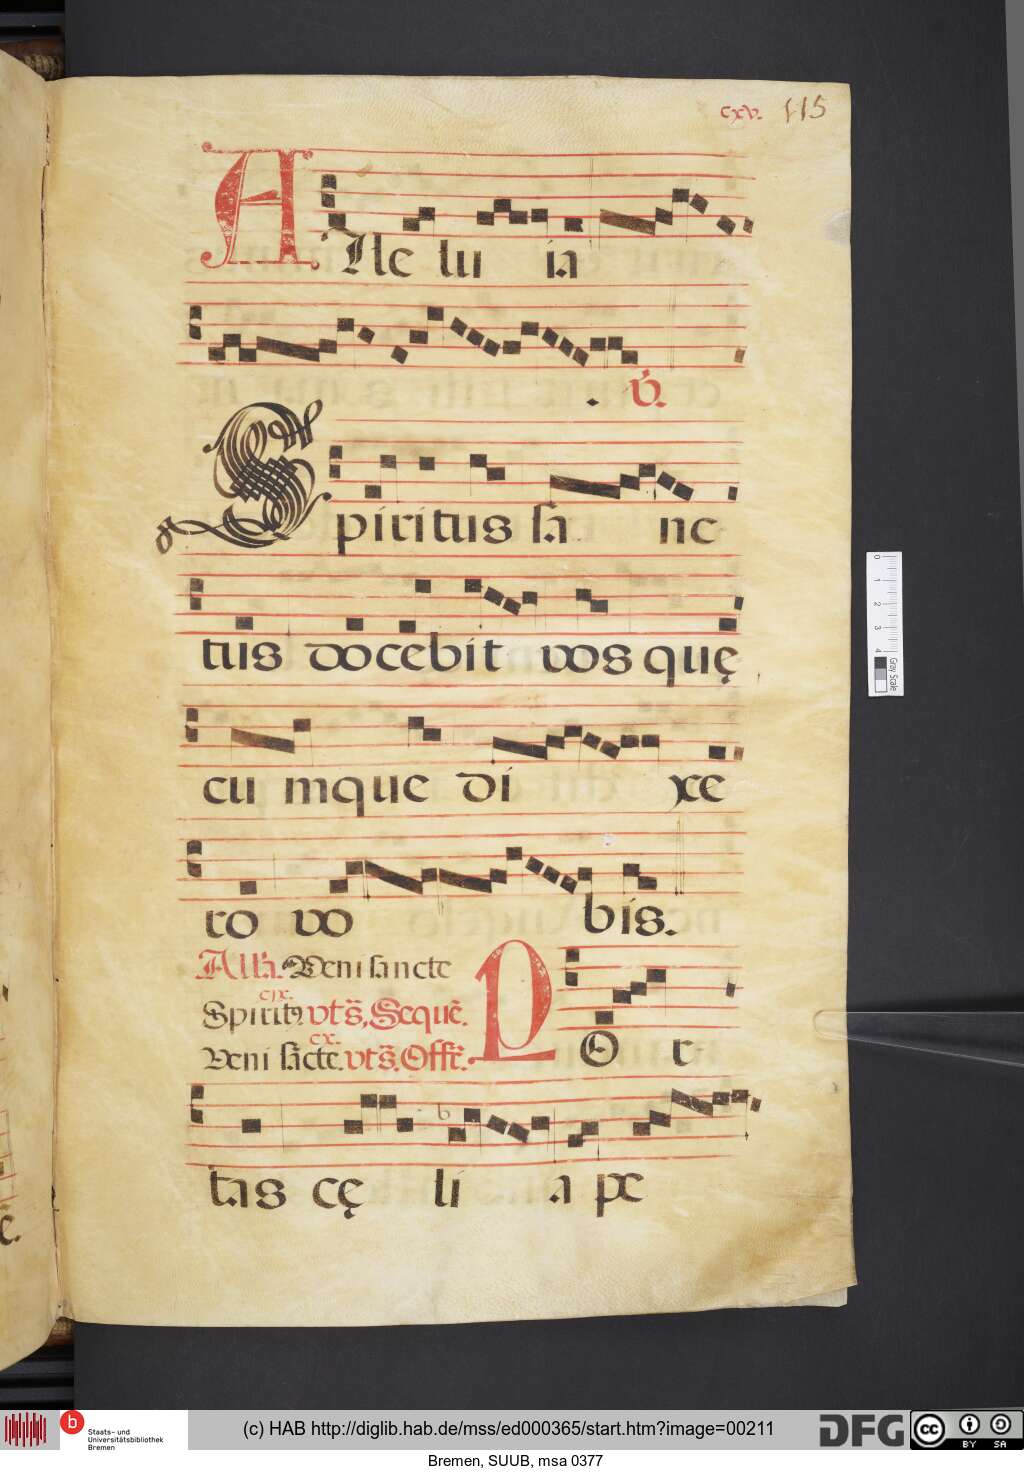 cxv. 115
Alle lui ia
℣.
Spiritus sa nc
tus docebit vos quę
cu mque di xe
ro vo bis.
All'a. Veni sancte
cix.
Spiritus vts̃. Sequẽ.
cx.
Veni sãcte. vts̃. Offr̃.
POr
b
tas cę li a pe
0 1 2 3 4 Gray Scale
Staats- und
Universitätsbibliothek
Bremen
(c) HAB http://diglib.hab.de/mss/ed000365/start.htm?image=00211
DFG
cc BY SA
Bremen, SUUB, msa 0377